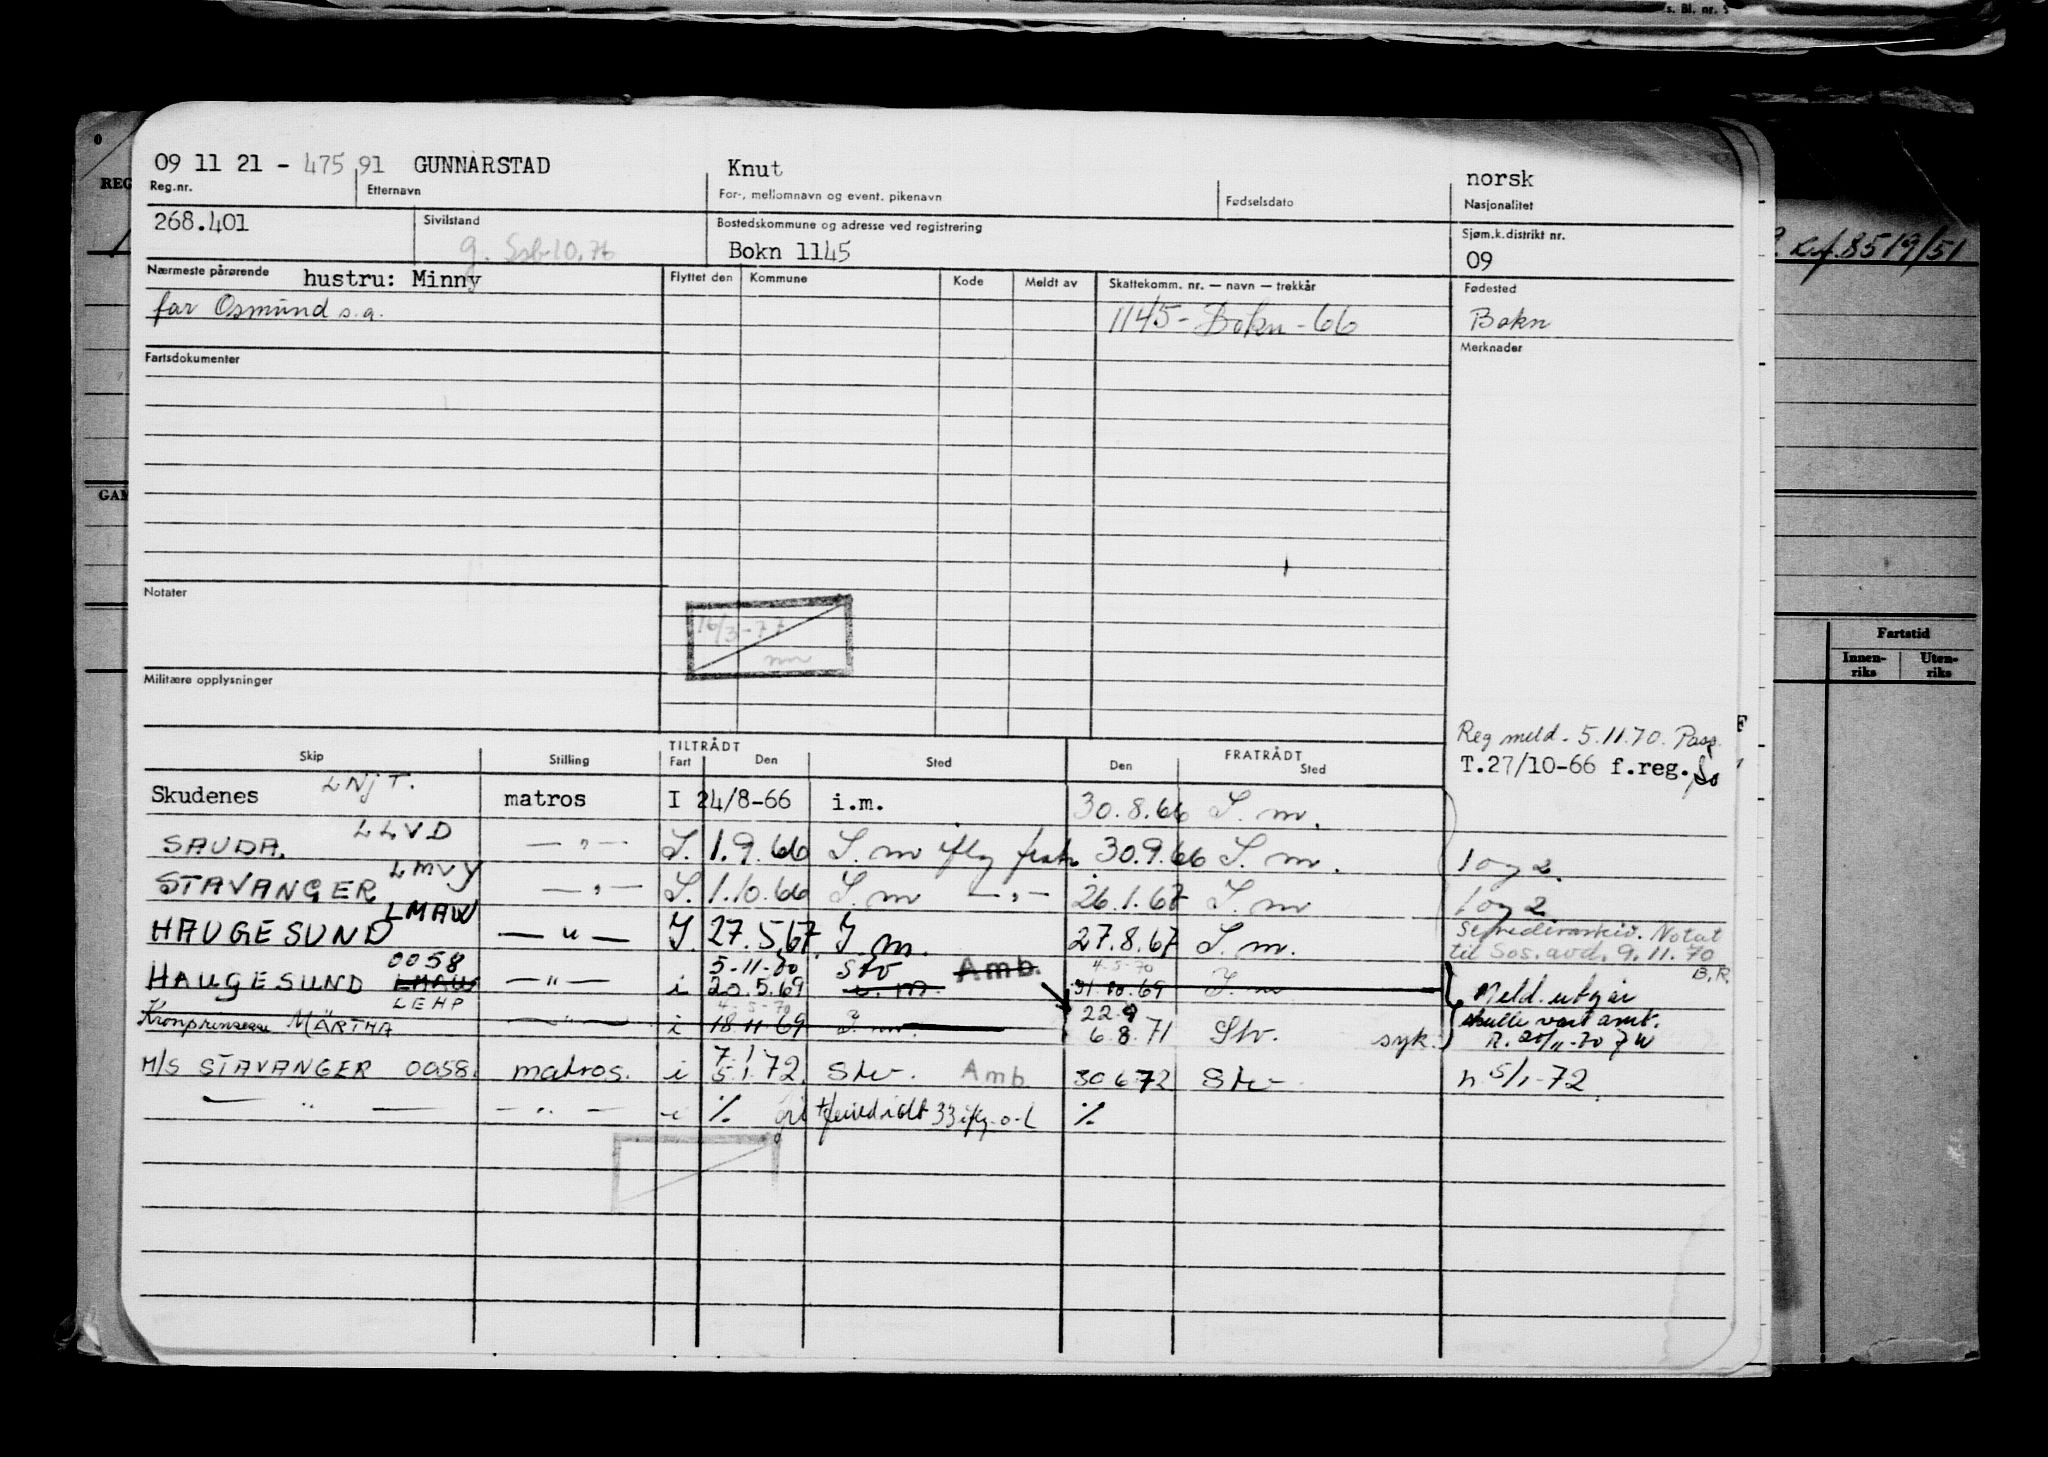 s. Bl. nr. 5
09 11 21 - 475 91 GUNNARSTAD Knut norsk
Reg.nr. Etternavn For-, mellomnavn og event. pikenavn Fødselsdato Nasjonalitet
268.401 Sivilstand Bostedskommune og adresse ved registrering Sjøm.k.distrikt nr.
g. Ssb 10.76 Bokn 1145 09
Nærmeste pårørende hustru: Minny Flyttet den Kommune Kode Meldt av Skattekomm. nr. — navn — trekkår Fødested
far Osmund s.a. 1145 - Bokn - 66 Bokn
Fartsdokumenter Merknader
Notater
16/3-77
Militære opplysninger
Reg meld. 5.11.70. Pass.
T.27/10-66 f.reg.
TILTRÅDT FRATRÅDT
Skip Stilling Fart Den Sted Den Sted
Skudenes LNJT. matros I 24/8-66 i.m. 30.8.66 I. m.
SAUDA. LLVD — " — I. 1.9.66 I. m 30.9.66 I. m. 1 og 2.
STAVANGER LMVY — " — I. 1.10.66 I. m — " — 26.1.67 I. m 1 og 2
HAUGESUND LMAW — " — I. 27.5.67. I m. 27.8.67 I. m.
Notat
til Sos. avd. 9.11.70
B.R
HAUGESUND 0058 LMAW — " — i 5-11-70 20.5.69 Stv Amb. 4-5-70 31.10.69 I. m
Meld. utgår
skulle vært amt.
Kronprinsesse MÄRTHA LEHP — " — i 4-5-70 18.11.69 I. m. 22.9 6.8.71 Stv. syk.
M/S STAVANGER 0058. matros. i 7.1 5.1.72. Stv. Amb 30 6-72 Stv n 5/1-72
— " — — " — i % 33 %
REG
GAM
Kef. 8519/51
Fartstid
Innen-
riks
Uten-
riks